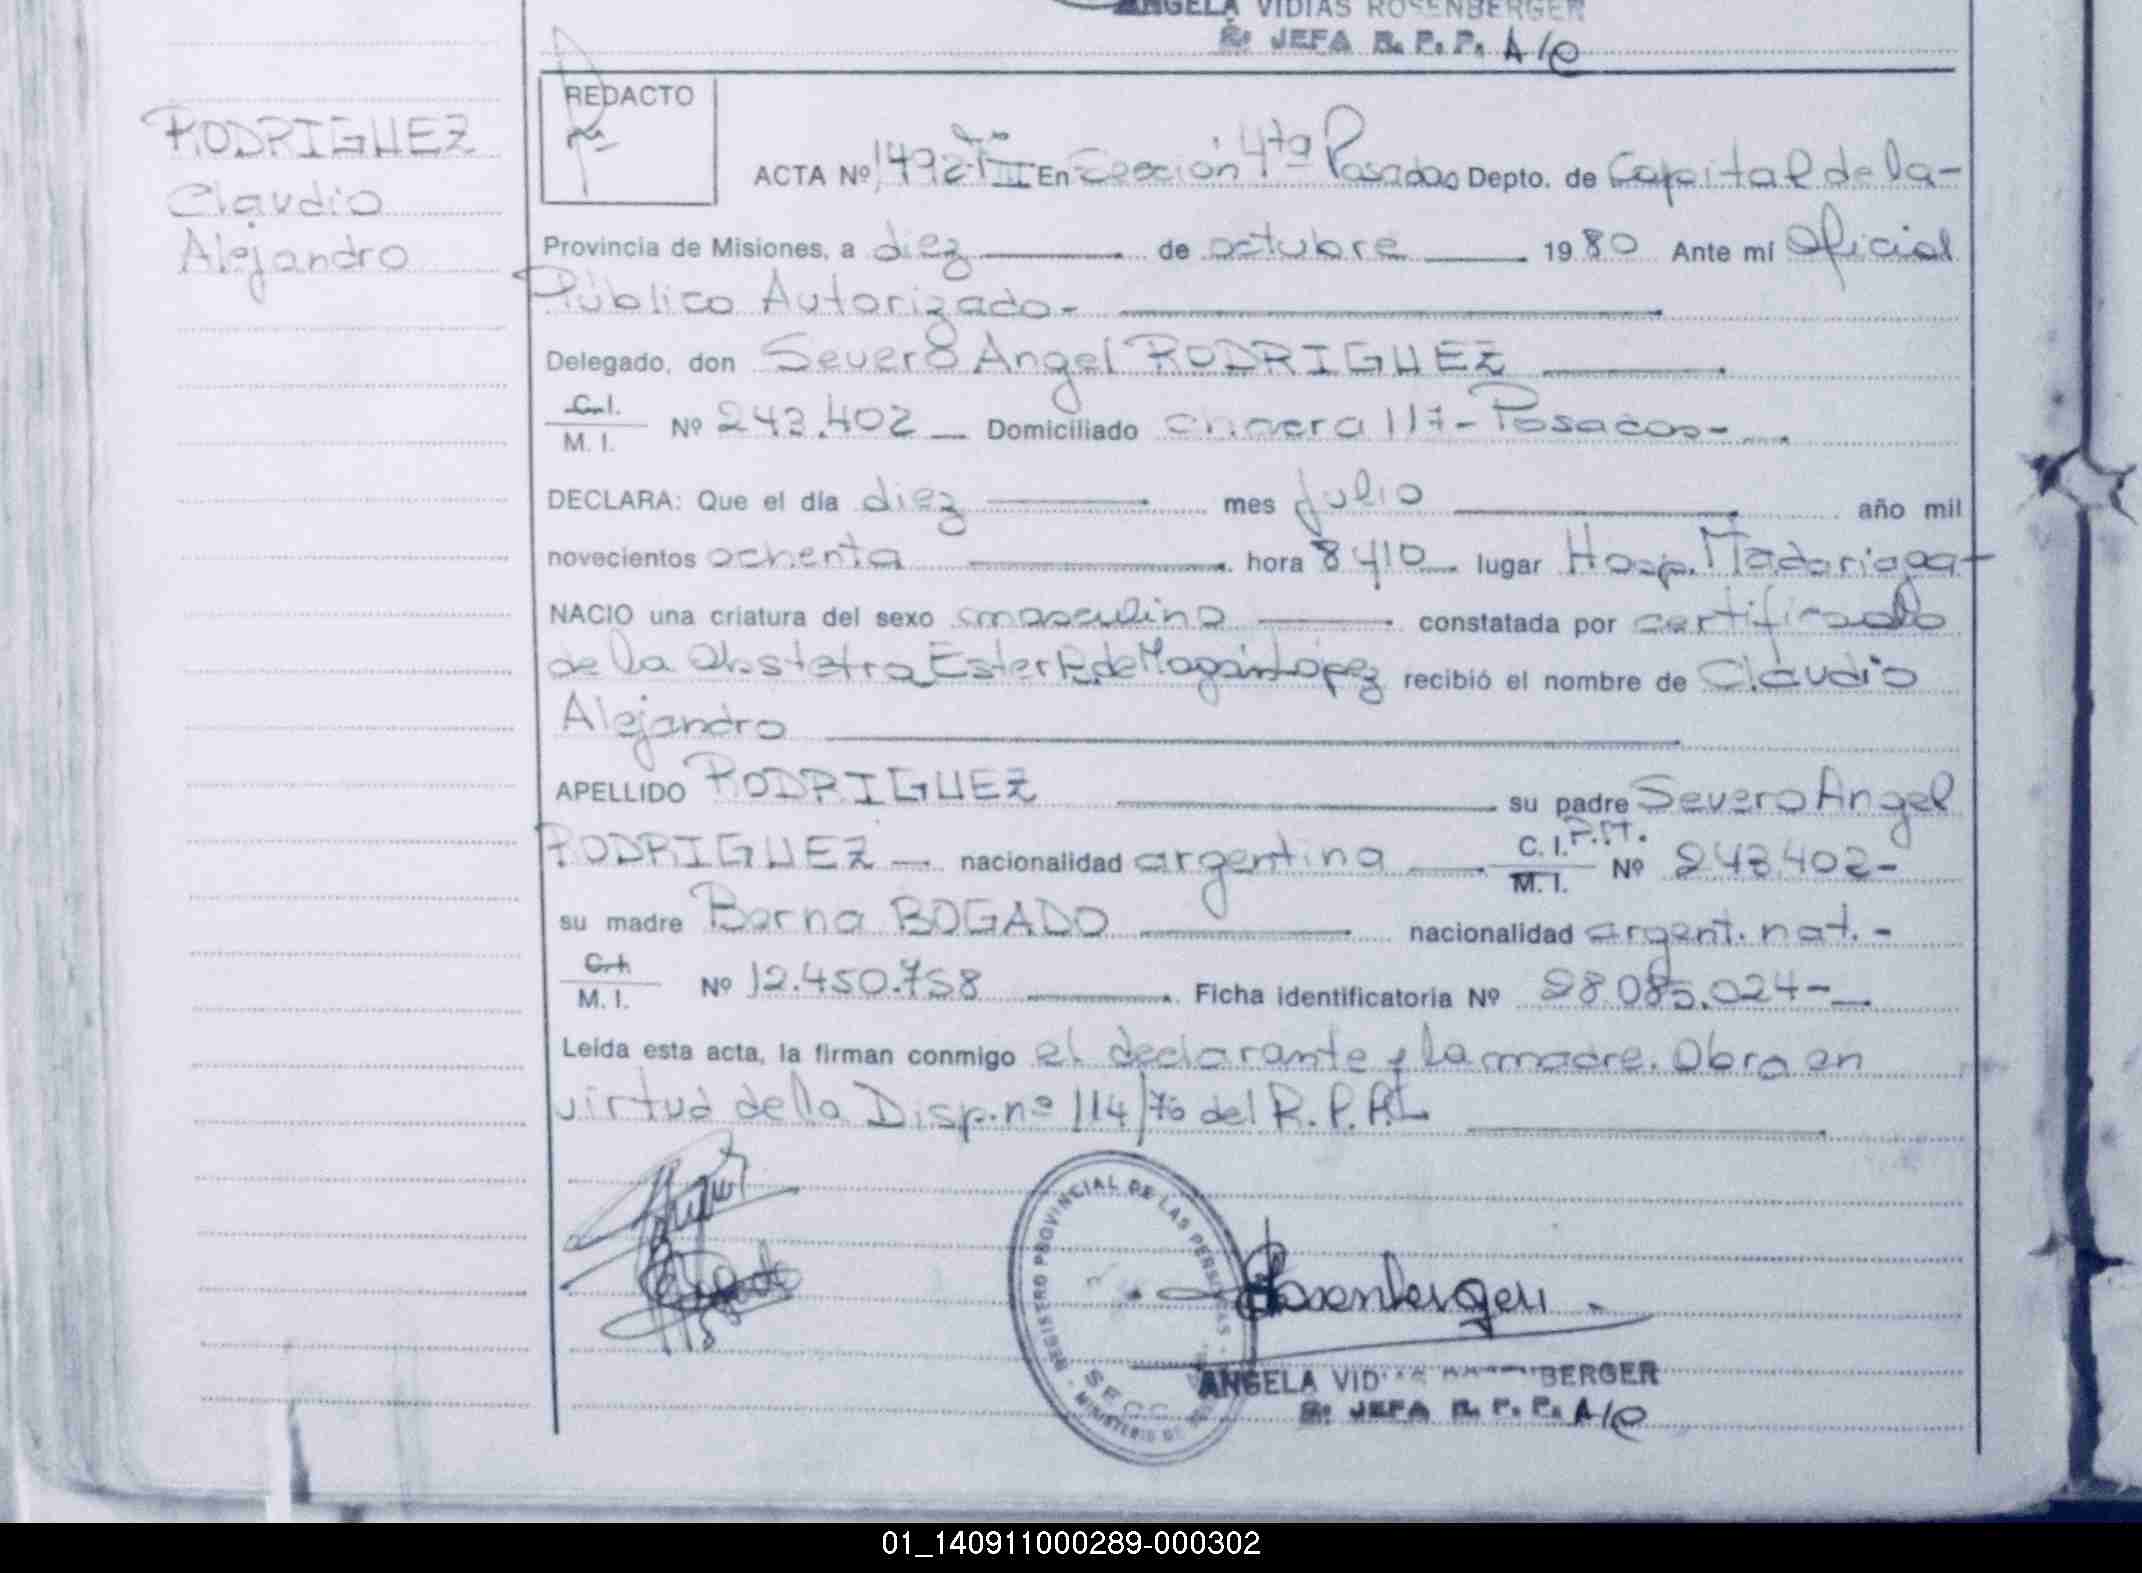 ANGELA VIDIAS ROSENBERGER
JEFA R. P. P. A/C
REDACTO
RODRIGUEZ
Claudio
Alejandro
ACTA Nº 1492 Tº III En Sección 4ta Posadas Depto. de Capital de la-
Provincia de Misiones, a diez de octubre 1980 Ante mí Oficial
Público Autorizado-
Delegado, don Severo Angel RODRIGUEZ
C.I.
M. I. Nº 243.402 Domiciliado chacra 117-Posadas-
DECLARA: Que el día diez mes julio año mil
novecientos ochenta hora 8 y 10 lugar Hosp. Madariaga-
NACIO una criatura del sexo masculino constatada por certificado
de la Obstetra Ester de recibió el nombre de Claudio
Alejandro
APELLIDO RODRIGUEZ su padre Severo Angel
RODRIGUEZ nacionalidad argentina C. I. M. I. Nº 243.402-
su madre BOGADO nacionalidad argent. nat.-
C.I.
M. I. Nº 12.450.758 Ficha identificatoria Nº 28.085.024-
Leída esta acta, la firman conmigo el declarante y la madre. Obra en
virtud de la Disp. nº 114/70 del R.P.P.
REGISTRO PROVINCIAL DE LAS PERSONAS
SECC
MINISTERIO DE
Rosenberger
ANGELA VID BERGER
JEFA R. P. P. A/C
01_140911000289-000302